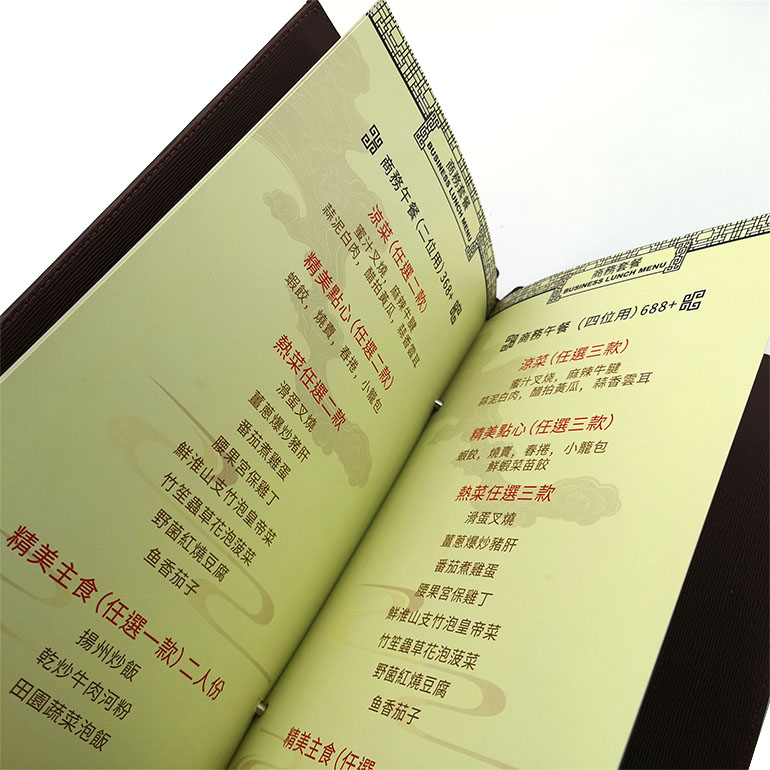 商務套餐
BUSINESS LUNCH MENU
商務午餐 (二位用) 368+
涼菜 (任選二款)
蜜汁叉燒, 麻辣牛腱
蒜泥白肉, 醋拍黃瓜, 蒜香雲耳
精美點心 (任選二款)
蝦餃, 燒賣, 春捲, 小籠包
熱菜任選二款
滑蛋叉燒
薑蔥爆炒豬肝
番茄煮雞蛋
腰果宮保雞丁
鮮淮山支竹泡皇帝菜
竹笙蟲草花泡菠菜
野菌紅燒豆腐
鱼香茄子
精美主食 (任選一款) 二人份
揚州炒飯
乾炒牛肉河粉
田園蔬菜泡飯
商務套餐
BUSINESS LUNCH MENU
商務午餐 (四位用) 688+
涼菜 (任選三款)
蜜汁叉燒, 麻辣牛腱
蒜泥白肉, 醋拍黃瓜, 蒜香雲耳
精美點心 (任選三款)
蝦餃, 燒賣, 春捲, 小籠包
鮮蝦菜苗餃
熱菜任選三款
滑蛋叉燒
薑蔥爆炒豬肝
番茄煮雞蛋
腰果宮保雞丁
鮮淮山支竹泡皇帝菜
竹笙蟲草花泡菠菜
野菌紅燒豆腐
鱼香茄子
精美主食 (任選